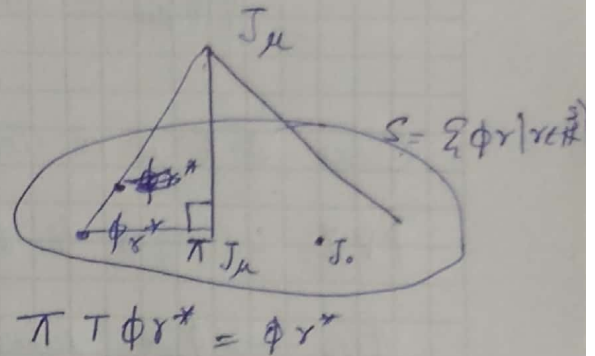 Jμ
S = {ϕr | r∈ℝ
ϕr*
π Jμ
J₀
π T ϕr* = ϕr*